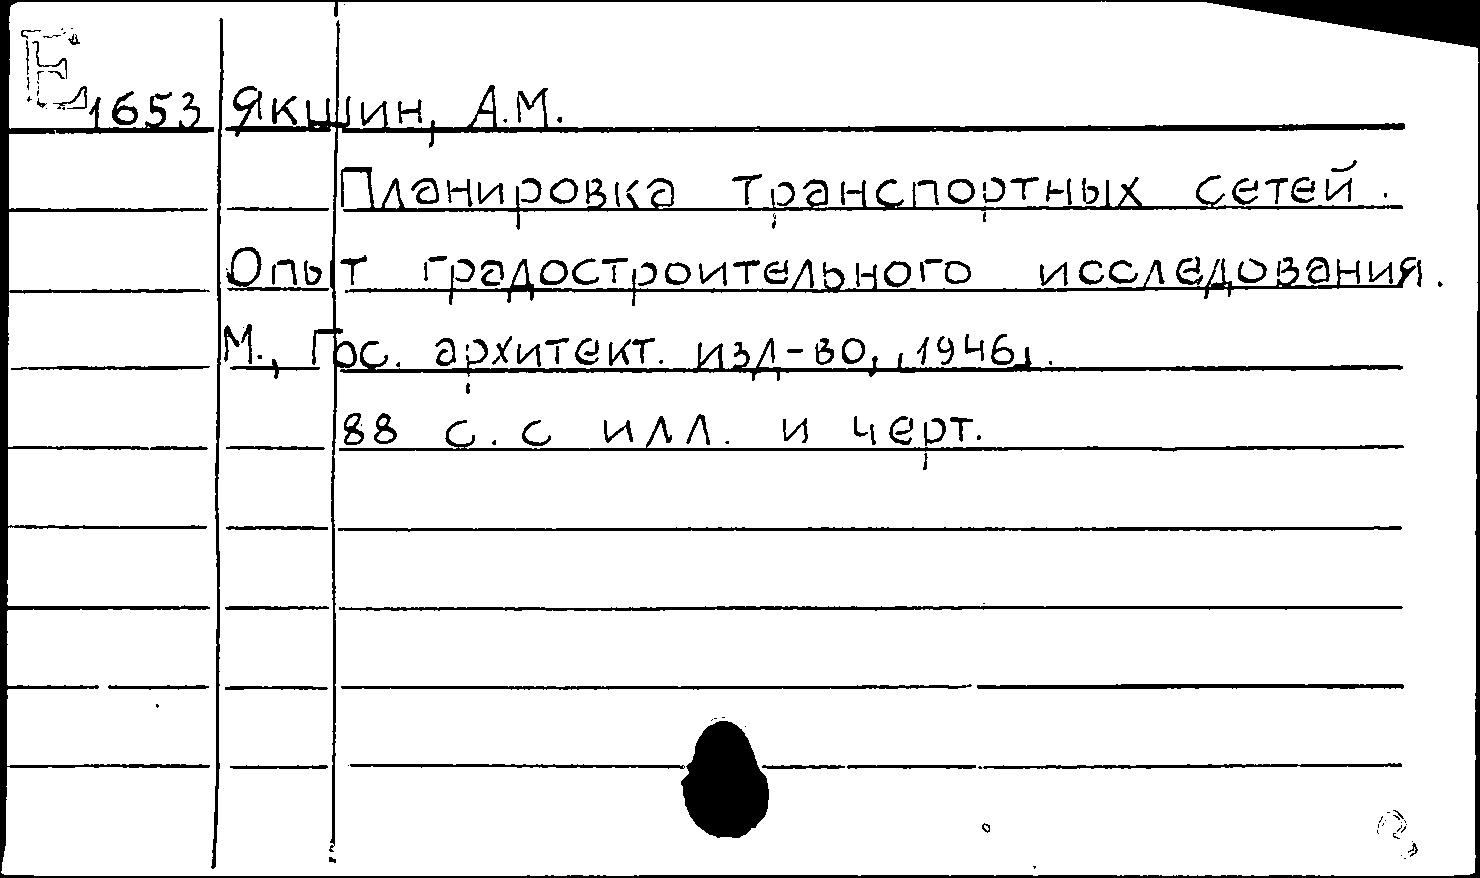 Е
1653 Якшин, А.М.
Планировка транспортных сетей.
Опыт градостроительного исследования.
М., Гос. архитект. изд-во, [1946].
88 с. с илл. и черт.